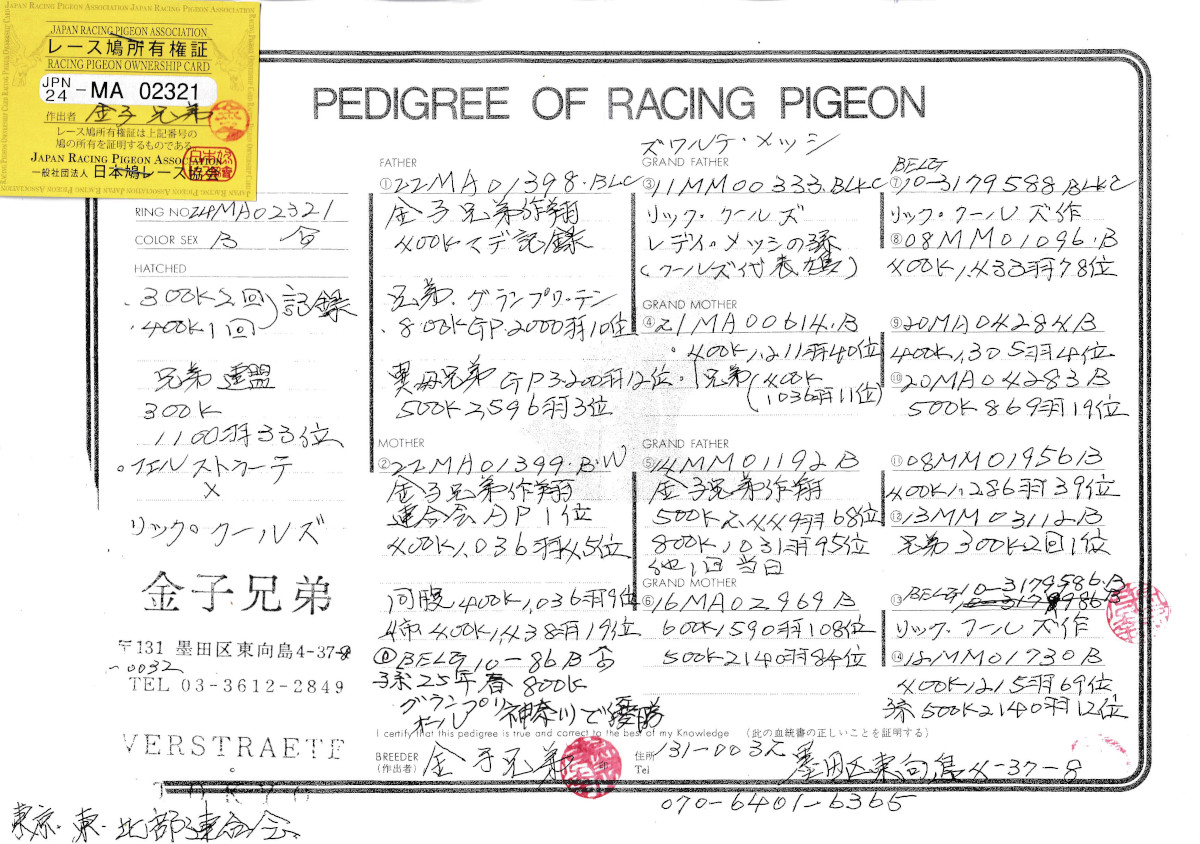 JAPAN RACING PIGEON ASSOCIATION JAPAN RACING PIGEON ASSOCIATION
JAPAN RACING PIGEON ASSOCIATION
レース鳩所有権証
RACING PIGEON OWNERSHIP CARD
JPN 24 - MA 02321
作出者 金子兄弟
レース鳩所有権証は上記番号の
鳩の所有を証明するものである。
JAPAN RACING PIGEON ASSOCIATION
一般社団法人 日本鳩レース協会
PEDIGREE OF RACING PIGEON
RING NO. 24MA02321
COLOR SEX B
HATCHED
・300K2回
・400K1回
記録
兄弟 連盟
300K
1100羽33位
×
リック・クールズ
金子兄弟
〒131 墨田区東向島4-37-8
-0032
TEL 03-3612-2849
VERSTRAETE
東京・東・北部連合会
FATHER
①22MA01398・BLC
金子兄弟作翔
400Kマデ記録
兄弟・グランプリ・テン
・800KGP2000羽10位
異母兄弟 GP3200羽12位・
500K2,596羽3位
MOTHER
②22MA01399・B・W
金子兄弟作翔
連合会AP1位
400K1,036羽45位
同腹 400K1,036羽9位
400K1,438羽19位
BELG 10-86B
孫25年春 800K
グランプリ
神奈川で優勝
ズワルテ・メッシ
GRAND FATHER
③11MM00333・BLKC
リック・クールズ
レディ・メッシの孫
(クールズ代表鳩)
GRAND MOTHER
④21MA00614・B
・400K1,211羽40位
兄弟(400K
1036羽11位)
GRAND FATHER
⑤14MM01192B
金子兄弟作翔
500K2449羽68位
800K1,031羽95位
他1回当日
GRAND MOTHER
⑥16MA02969B
600K1590羽108位
500K2140羽84位
BELG
⑦10-3179588BLKC
リック・クールズ作
⑧08MM01096・B
400K1,433羽78位
⑨20MA04284B
400K1,305羽4位
⑩20MA04283B
500K869羽19位
⑪08MM01956B
400K1,286羽39位
⑫13MM03112B
兄弟300K2回1位
⑬BELG10-3179586・B
リック・クールズ作
⑭12MM01730B
400K1215羽69位
孫500K2140羽12位
I certify that this pedigree is true and correct to the best of my Knowledge (此の血統書の正しいことを証明する)
BREEDER
(作出者) 金子兄弟
住所 131-0032
Tel
墨田区東向島4-37-8
070-6401-6365